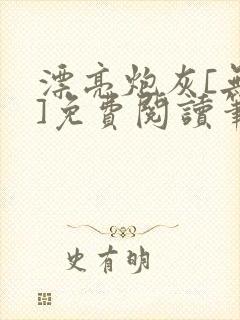 漂亮炮灰[無
]免費閱讀筆
史有明